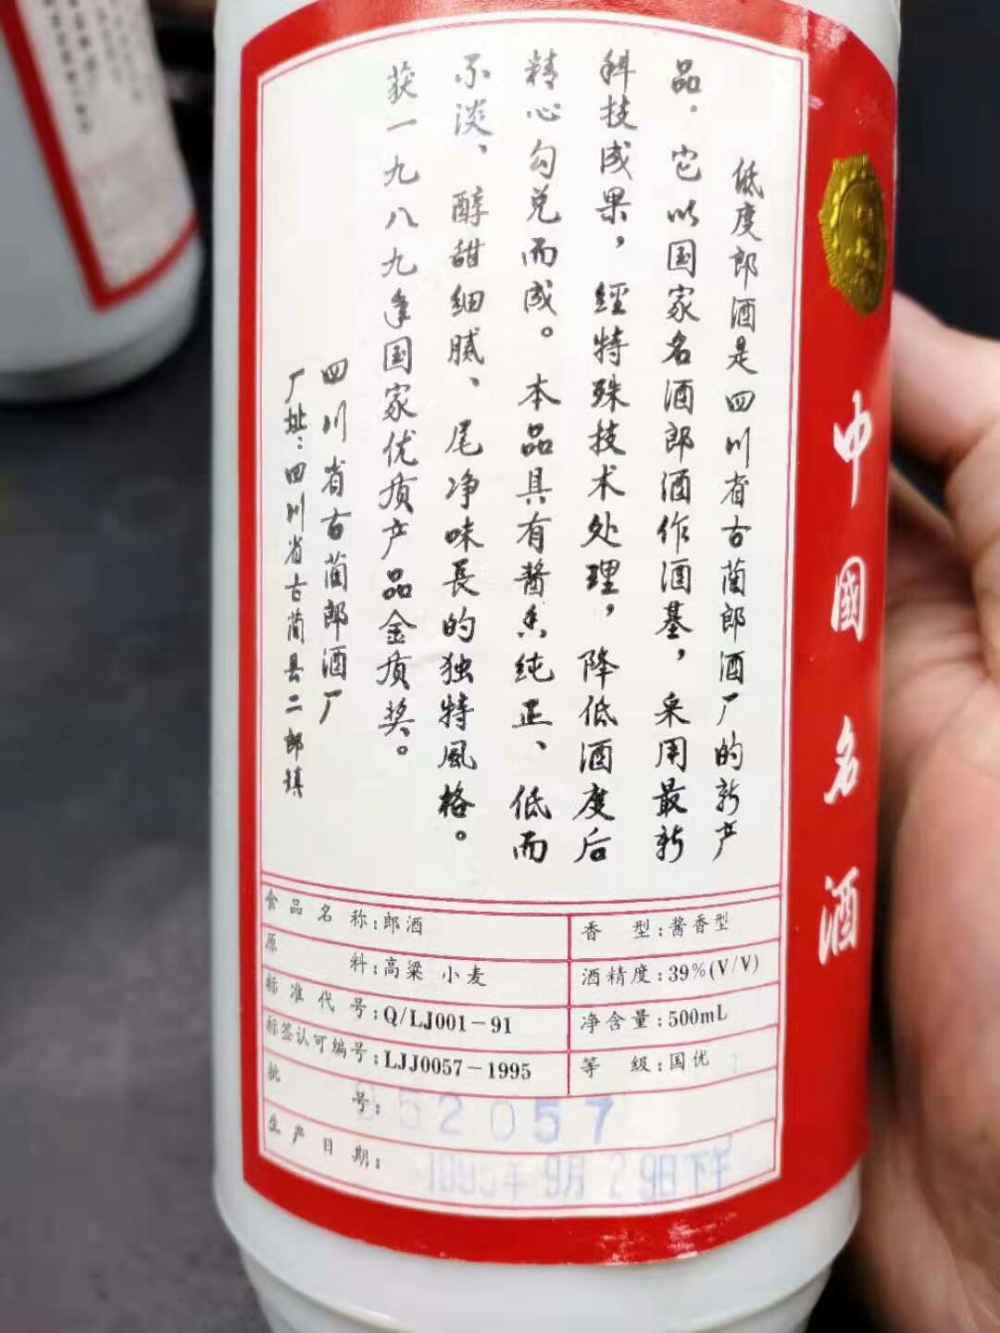 低度郎酒是四川省古蔺郎酒厂的新产
品。它以国家名酒郎酒作酒基，采用最新
科技成果，經特殊技术处理，降低酒度后
精心勾兑而成。本品具有醬香纯正、低而
不淡、醇甜细腻、尾净味長的独特風格。
获一九八九年国家优质产品金质奖。
四川省古蔺郎酒厂
厂址：四川省古蔺县二郎镇
食品名称:郎酒
香型:酱香型
原料:高粱 小麦
酒精度:39%(V/V)
标准代号:Q/LJ001-91
净含量:500mL
标签认可编号:LJJ0057-1995
等级:国优
批号:952057
生产日期:1995年9月29日下午
中國名酒